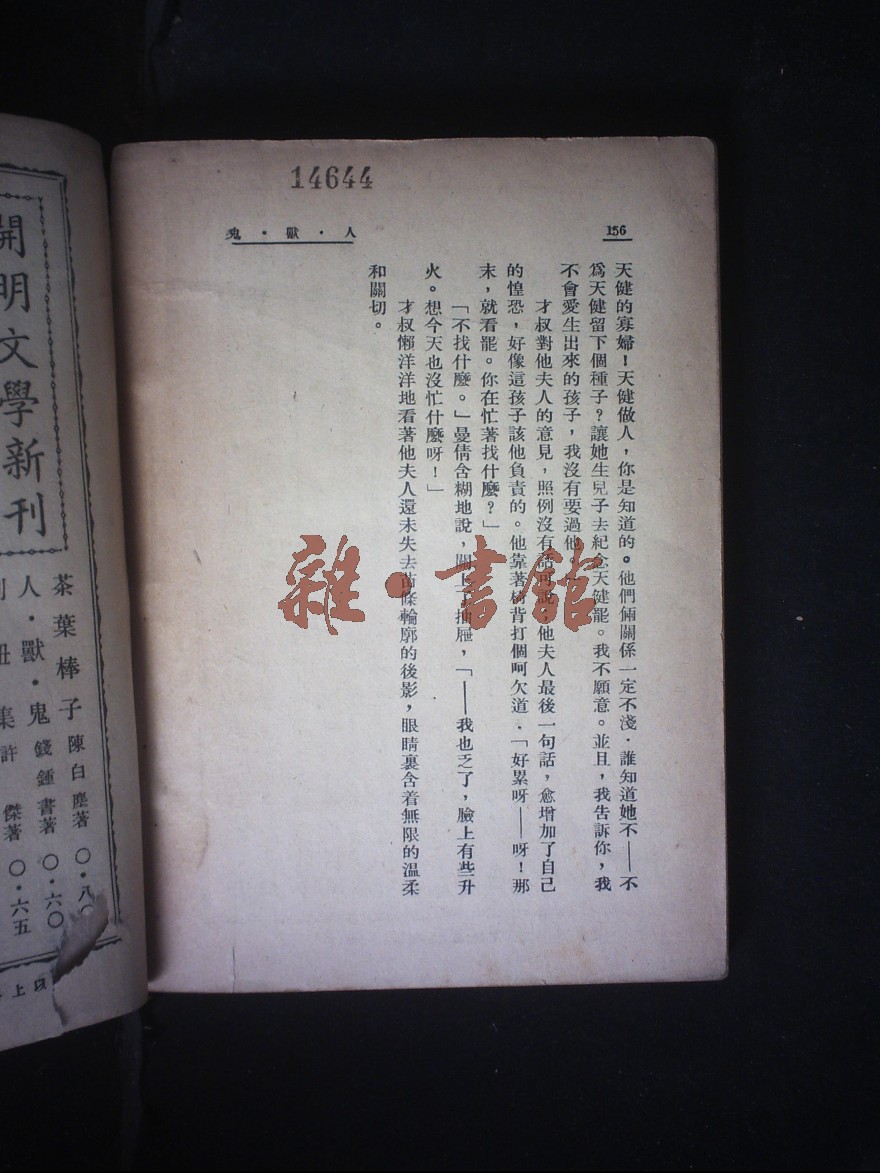 14644
156
人・獸・鬼
天健的寡婦！天健做人，你是知道的。他們倆關係一定不淺．誰知道她不——不
爲天健留下個種子？讓她生兒子去紀念天健罷。我不願意。並且，我告訴你，我
不會愛生出來的孩子，我沒有要過他
才叔對他夫人的意見，照例沒有話可說，他夫人最後一句話，愈增加了自己
的惶恐，好像這孩子該他負責的。他靠著椅背打個呵欠道．「好累呀——呀！那
末，就看罷。你在忙著找什麼？」
「不找什麼。」曼倩含糊地說，關上了抽屜，「——我也乏了，臉上有些升
火。想今天也沒忙什麼呀！」
才叔懶洋洋地看著他夫人還未失去苗條輪廓的後影，眼睛裏含着無限的溫柔
和關切。
雜・書館
開明文學新刊
茶葉棒子 陳白塵著 〇・八
人・獸・鬼 錢鍾書著 〇・六〇
集 許傑著 〇・六五
以上